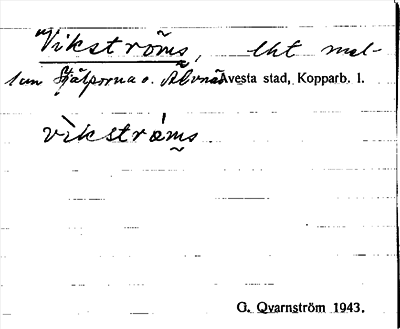 Vikströms, lht mel-
lan Hjälporna o. Alvnäs Avesta stad, Kopparb. l.
vìkstrǿms.
G. Qvarnström 1943.